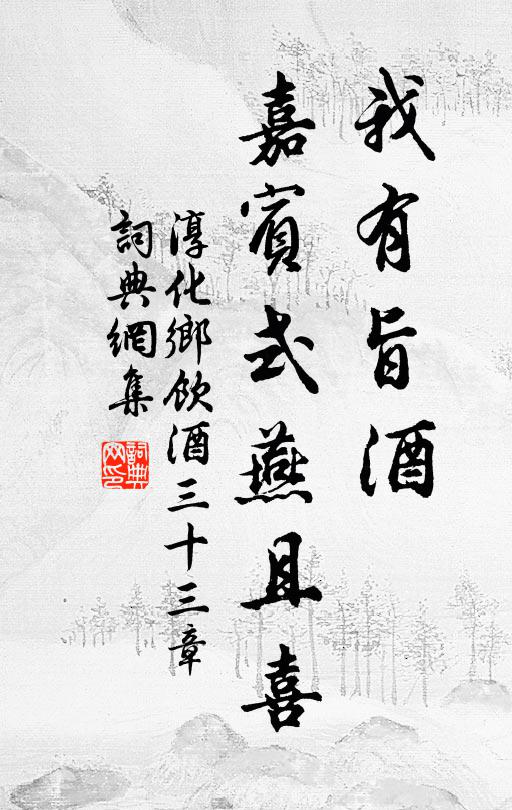 我有旨酒
嘉賓式燕且喜
淳化鄉飲酒三十三章
詞典網集
詞典網印